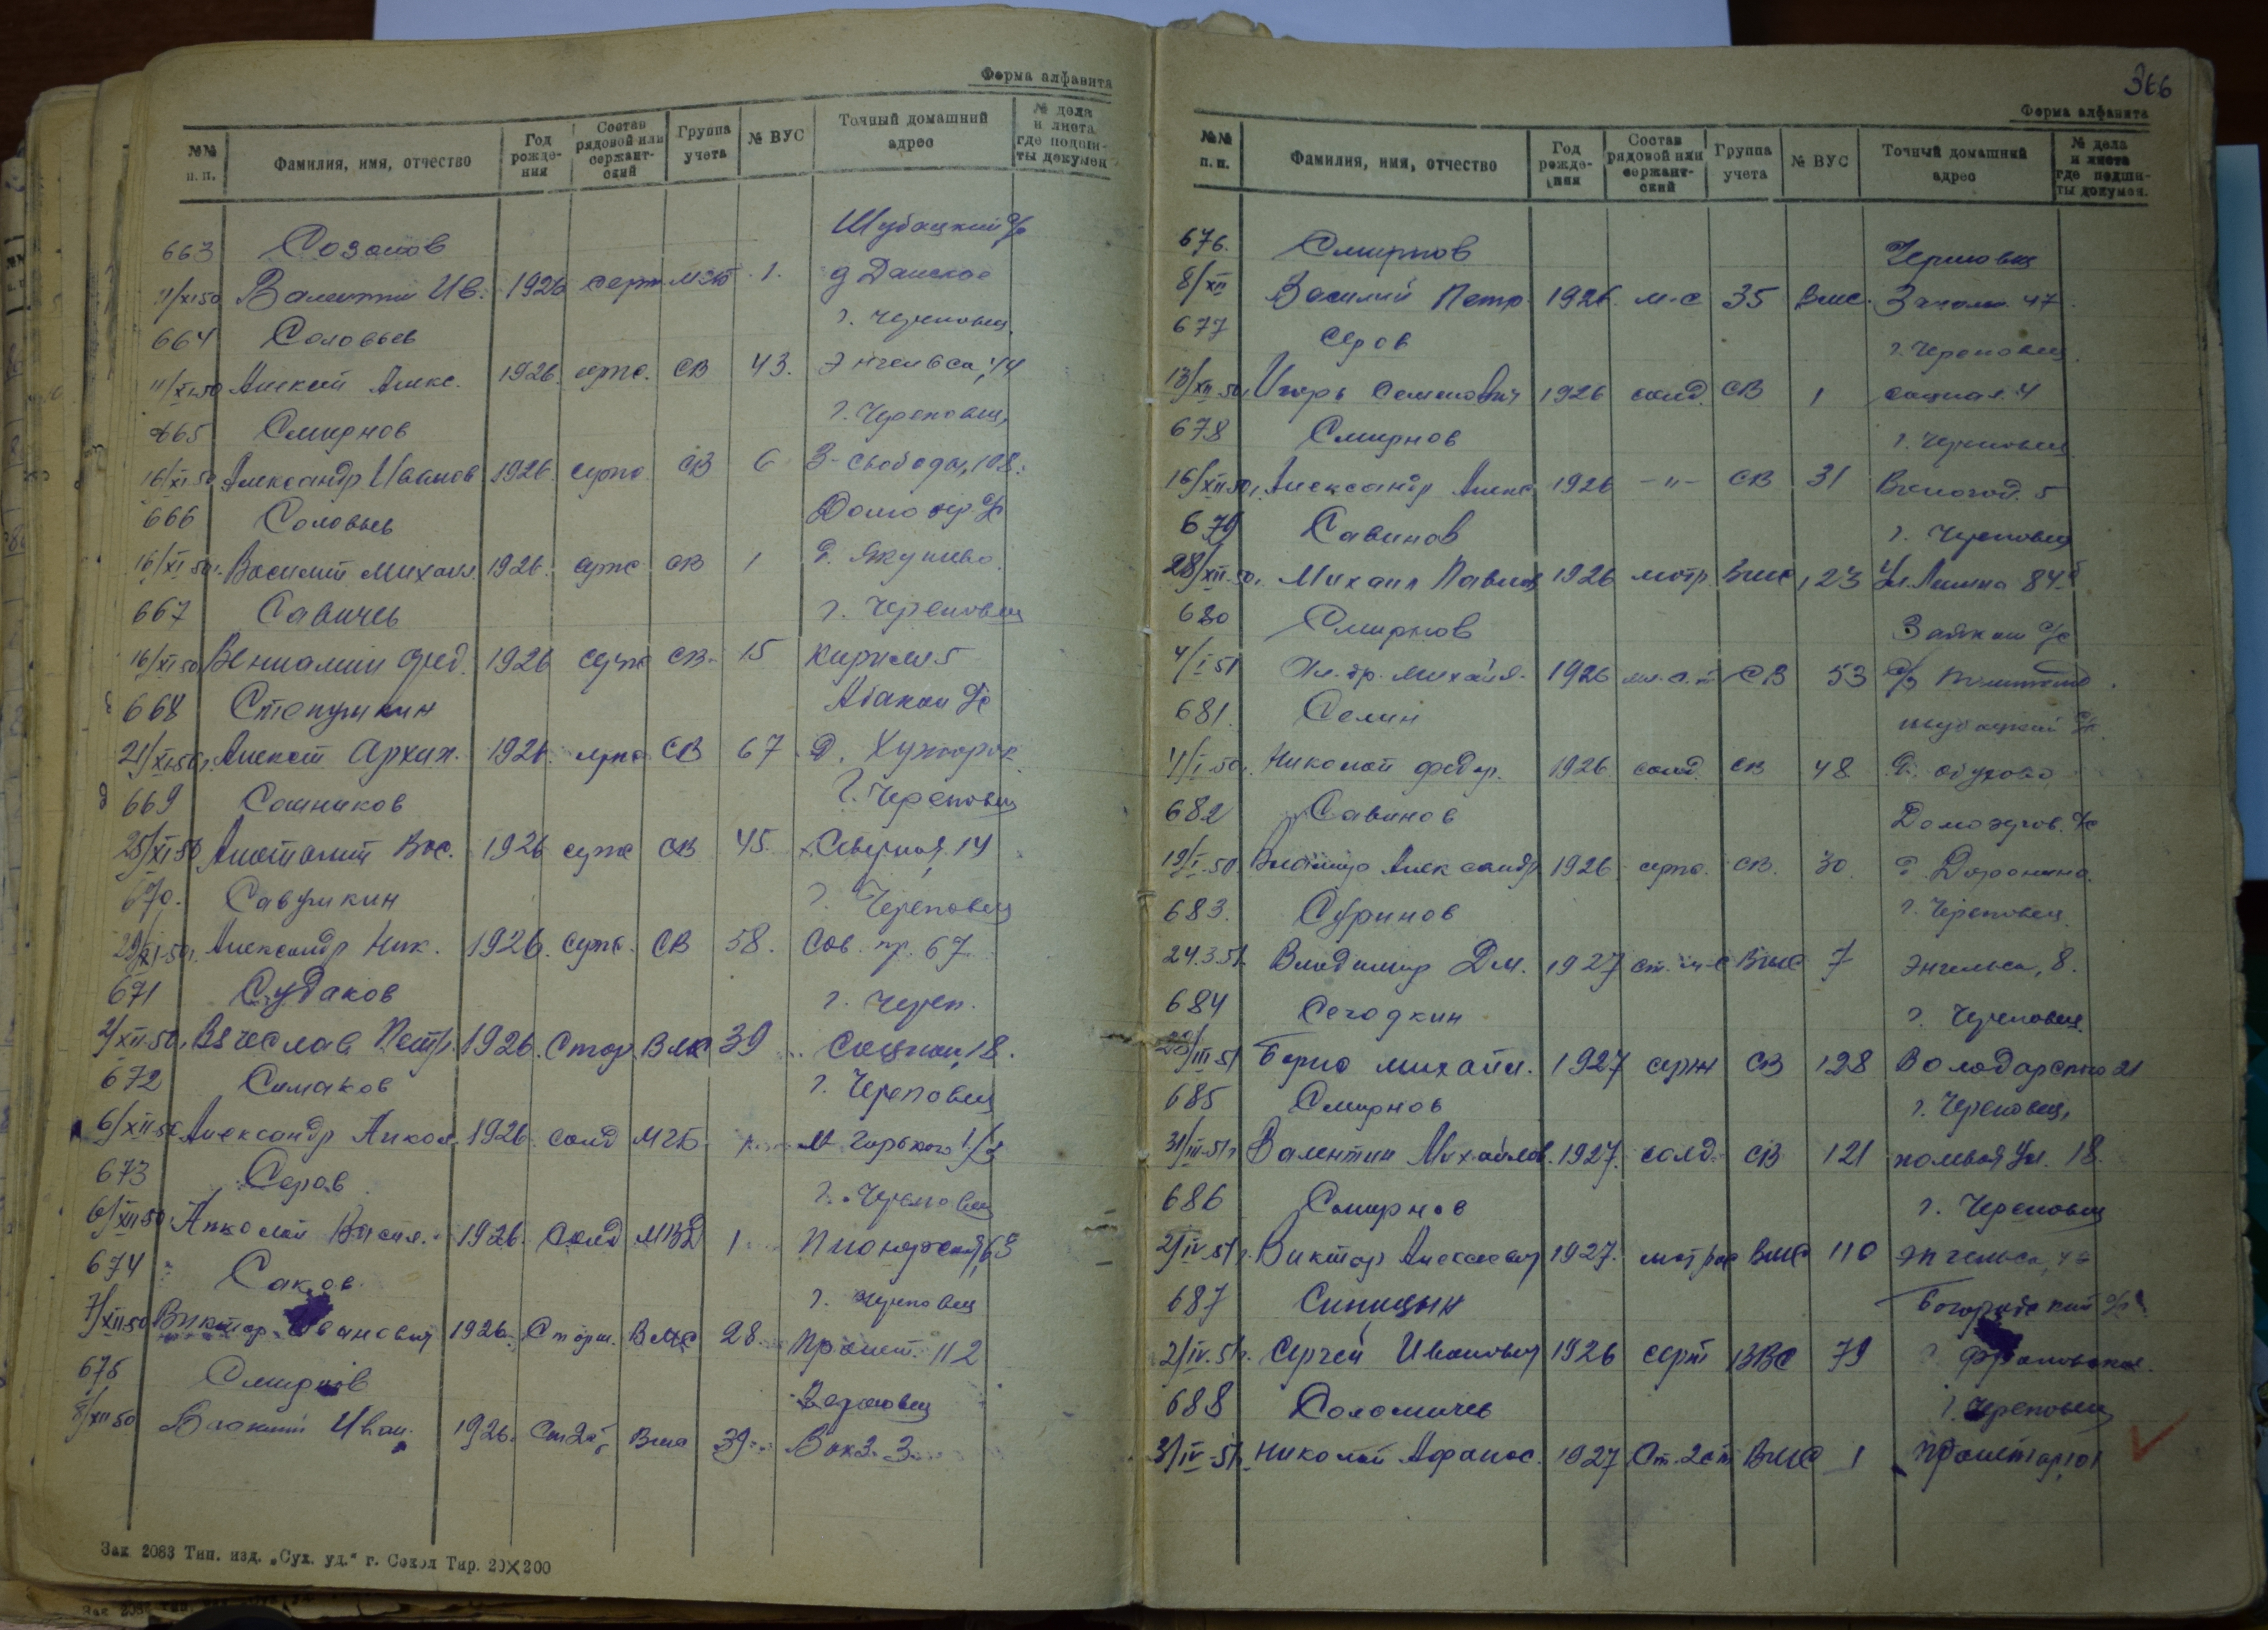 Форма алфавита
№№ п. п. Фамилия, имя, отчество Год рожде- ния Состав рядовой или сержант- ский Группа учета № ВУС Точный домашний адрес № дела и листа, где подши- ты докумен
663 Созонов Шубацкий с/с
11/XI 50 Валентин Ив. 1926 серж 1. д
664 Соловьев г. Череповец
11/XI 50 Алексей Алекс. 1926. серж. СВ 43. Энгельса, 44
665 Смирнов г. Череповец,
16/XI 50 Александр Иванов 1926. серж. СВ 6 З-Свободы, 108.
666 Соловьев Домозер. с/с
16/XI 50г. Василий Михаил. 1926. серж СВ 1 д. Якунино.
667 Савичев г. Череповец
16/XI 50 Вениамин Фед. 1926 серж СВ- 15 Кирилл 5
668 Степушкин Абакан с/с
21/XI 50г. Алексей Архип. 1926. серж. СВ 67 д.
669 Сошников г. Череповец
25/XI 50 Анатолий Вас. 1926 серж СВ 45. Северная, 14
670. Савушкин г. Череповец
29/XI-50г. Александр Ник. 1926. серж. СВ 58. Сов. пр. 67
671 Судаков г. Череп.
2/XII-50г. Вячеслав Петр. 1926. Стар. ВМС 39 Социал, 18.
672 Симаков г. Череповец
6/XII 50 Александр Никол. 1926. солд МГБ М Горького
673 Серов г. Череповец
6/XII 50 Николай Васил. 1926. Солд МВД 1 Пионерская, 63
674 Саков г. Череповец
7/XII 50 Виктор Иванович 1926. Старш. ВМС 28. Пролет. 112
675 Смирнов Череповец
8/XII 50 Иван. 1926. ВМС 39 Вокз. 3.
Зак 2083 Тип. изд. „Сух. уд.“ г. Сокол Тир. 20×200
366
Форма алфавита
№№ п. п. Фамилия, имя, отчество Год рожде- ния Состав рядовой или сержант- ский Группа учета № ВУС Точный домашний адрес № дела и листа где подши- ты докумен.
676. Смирнов Череповец
8/XII Василий Петр. 1926. м-с 35 ВМС. 47.
677 Серов г. Череповец.
13/XII 50г. Игорь Семенович 1926 солд. СВ 1 социал. 4
678 Смирнов г. Череповец
16/XII 50г. Александр Алекс 1926 -"- СВ 31 Вологод. 5
679 Савинов г. Череповец
28/XII.50г. Михаил Павлов 1926 матр. ВМС 23 Ул. Ленина 84
680 Смирнов с/с
4/I 51 Михайл. 1926 СВ 53
681. Селин Шубацкий с/с.
4/I.50г. Николай Федор. 1926. солд. СВ 48 д. Обухово
682 Савинов Домозеров. с/с
19/I.50. Владимир Александр 1926. серж. СВ. 30. д. Доронино.
683. Суринов г. Череповец.
24.3.51. Владимир Дм. 1927 ст. м-с ВМС 7 Энгельса, 8.
684 Сегодкин г. Череповец.
28/III 51 Борис Михайл. 1927 серж СВ 128 Володарского 21
685 Смирнов г. Череповец,
31/III-51г Валентин Михайлов. 1927. солд. СВ 121 полевая ул. 18.
686 Смирнов г. Череповец
2/IV.51г. Виктор Алексеевич 1927. матрос ВМС 110 Энгельса,
687 Синицын Богородский с/с
2/IV.51г. Сергей Иванович 1926 серж ВВС 79
688 Соломичев г. Череповец
3/IV-51г. Николай Афанас. 1927 Ст. 2 ст ВМС 1 Пролетар, 101